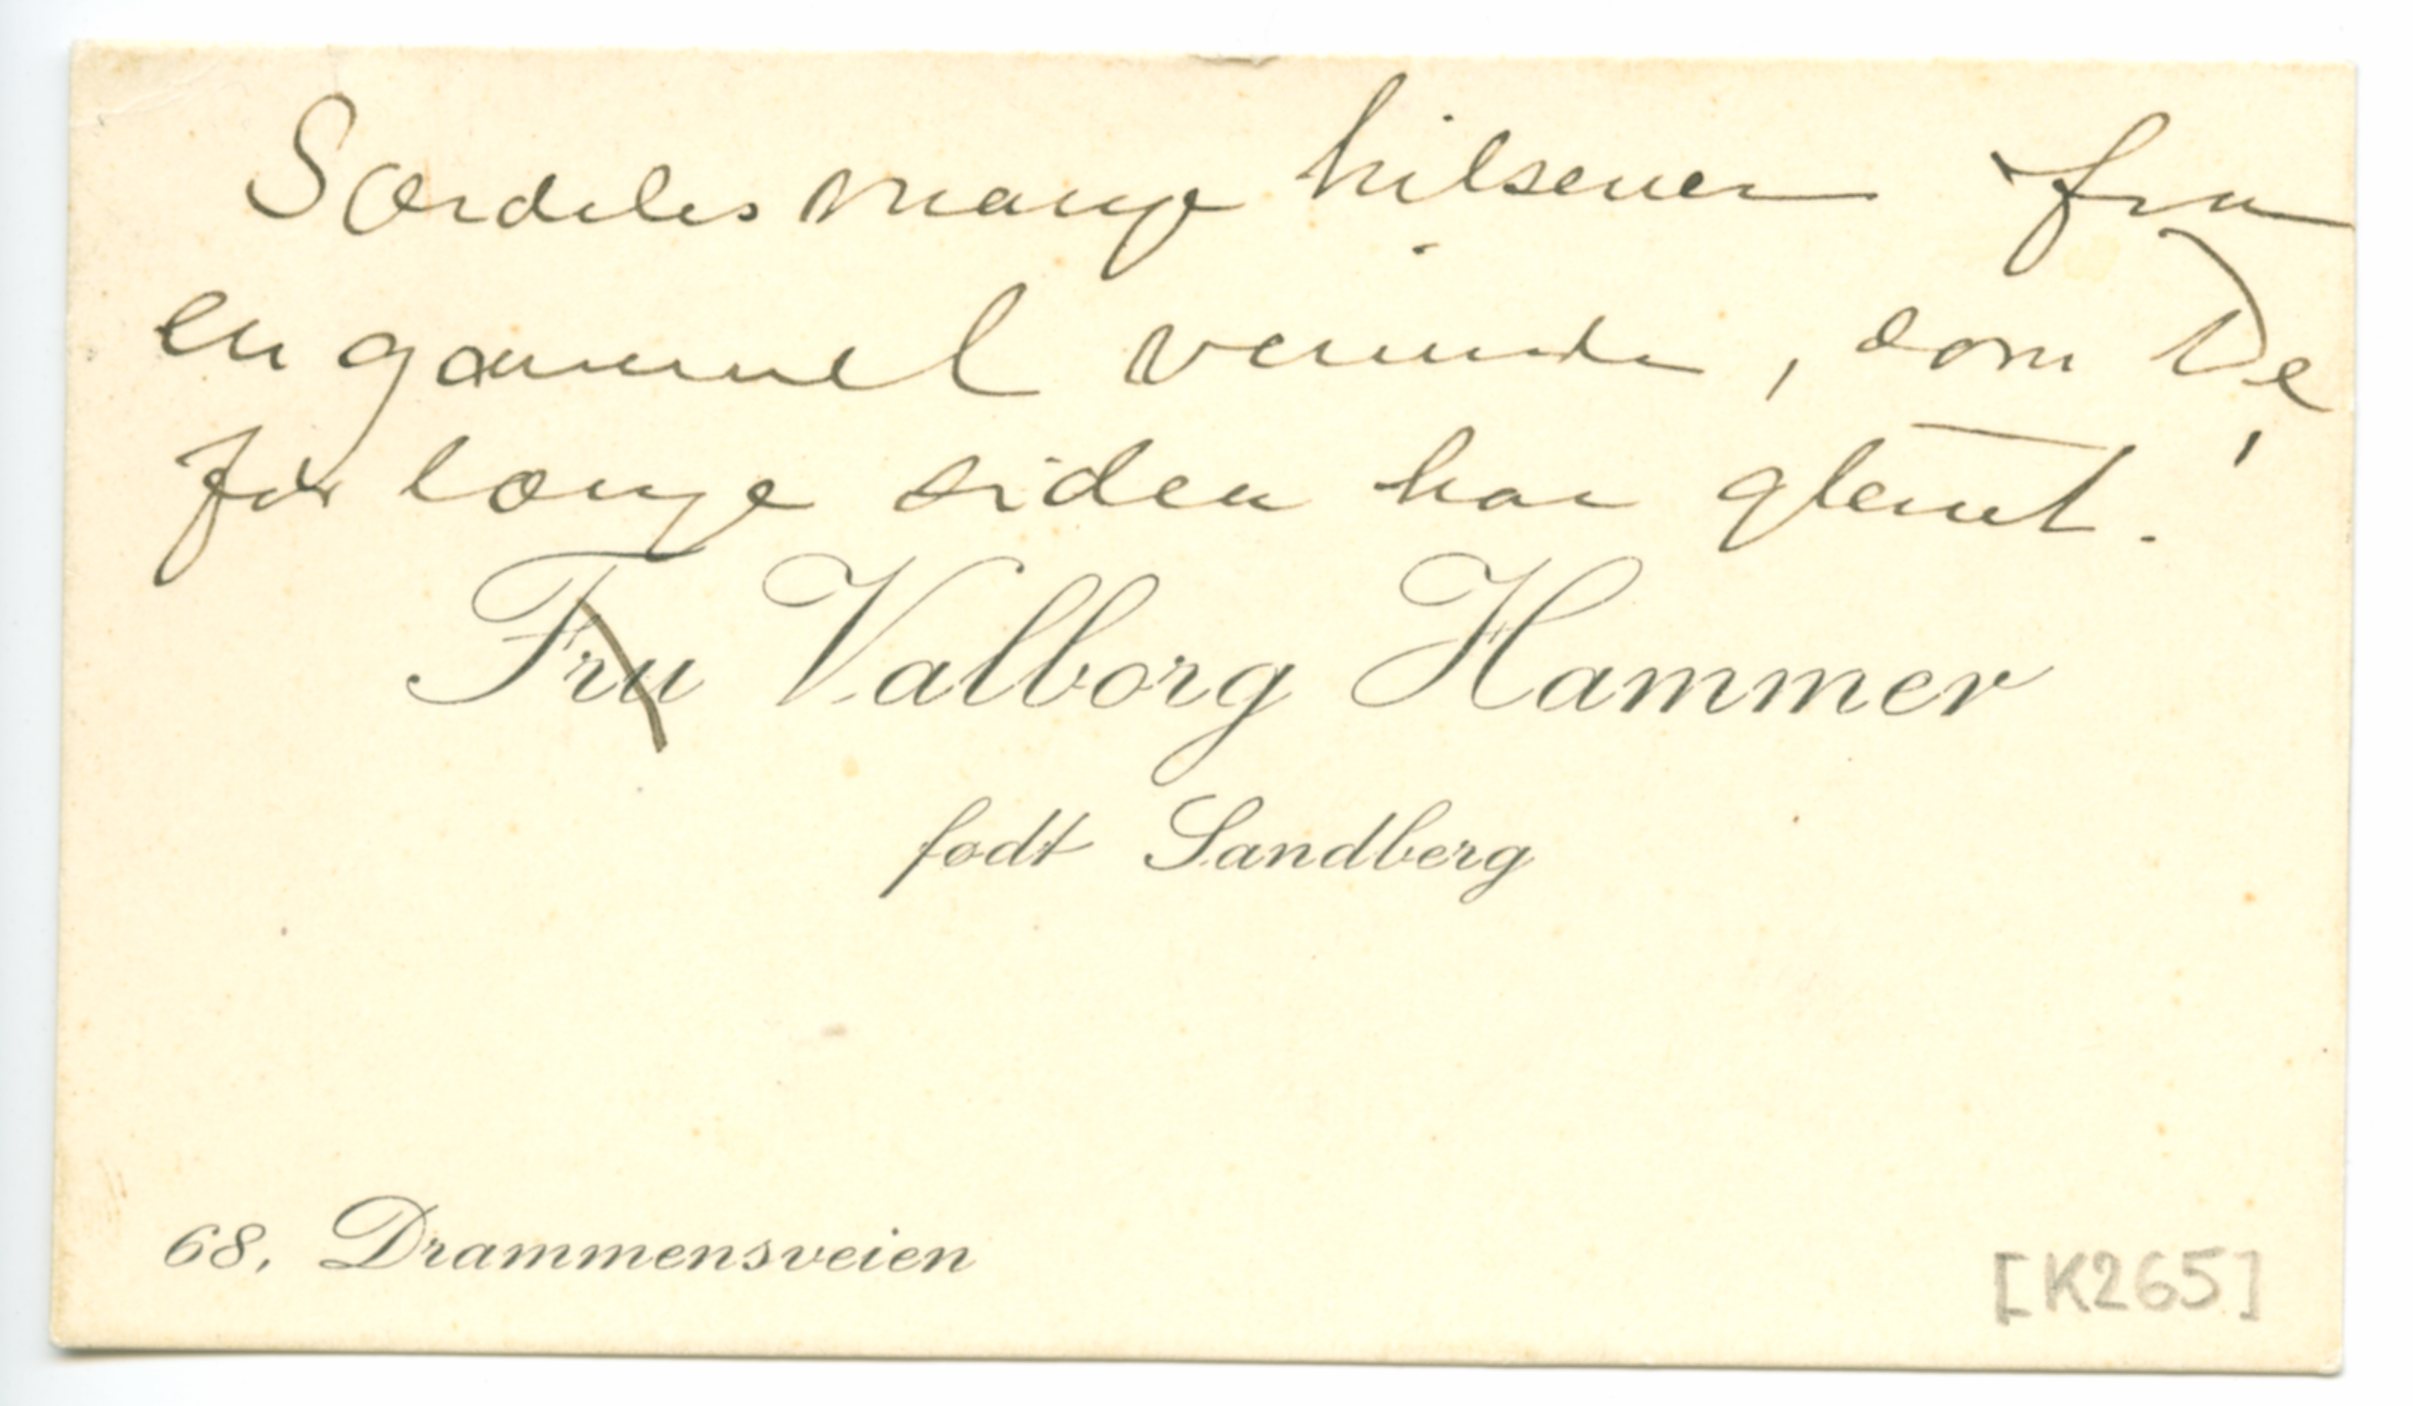 Særdeles mange hilsener fra
en gammel veninde, som De
for længe siden har glemt.!
Fru Valborg Hammer
født Sandberg
68, Drammensveien
[K265]